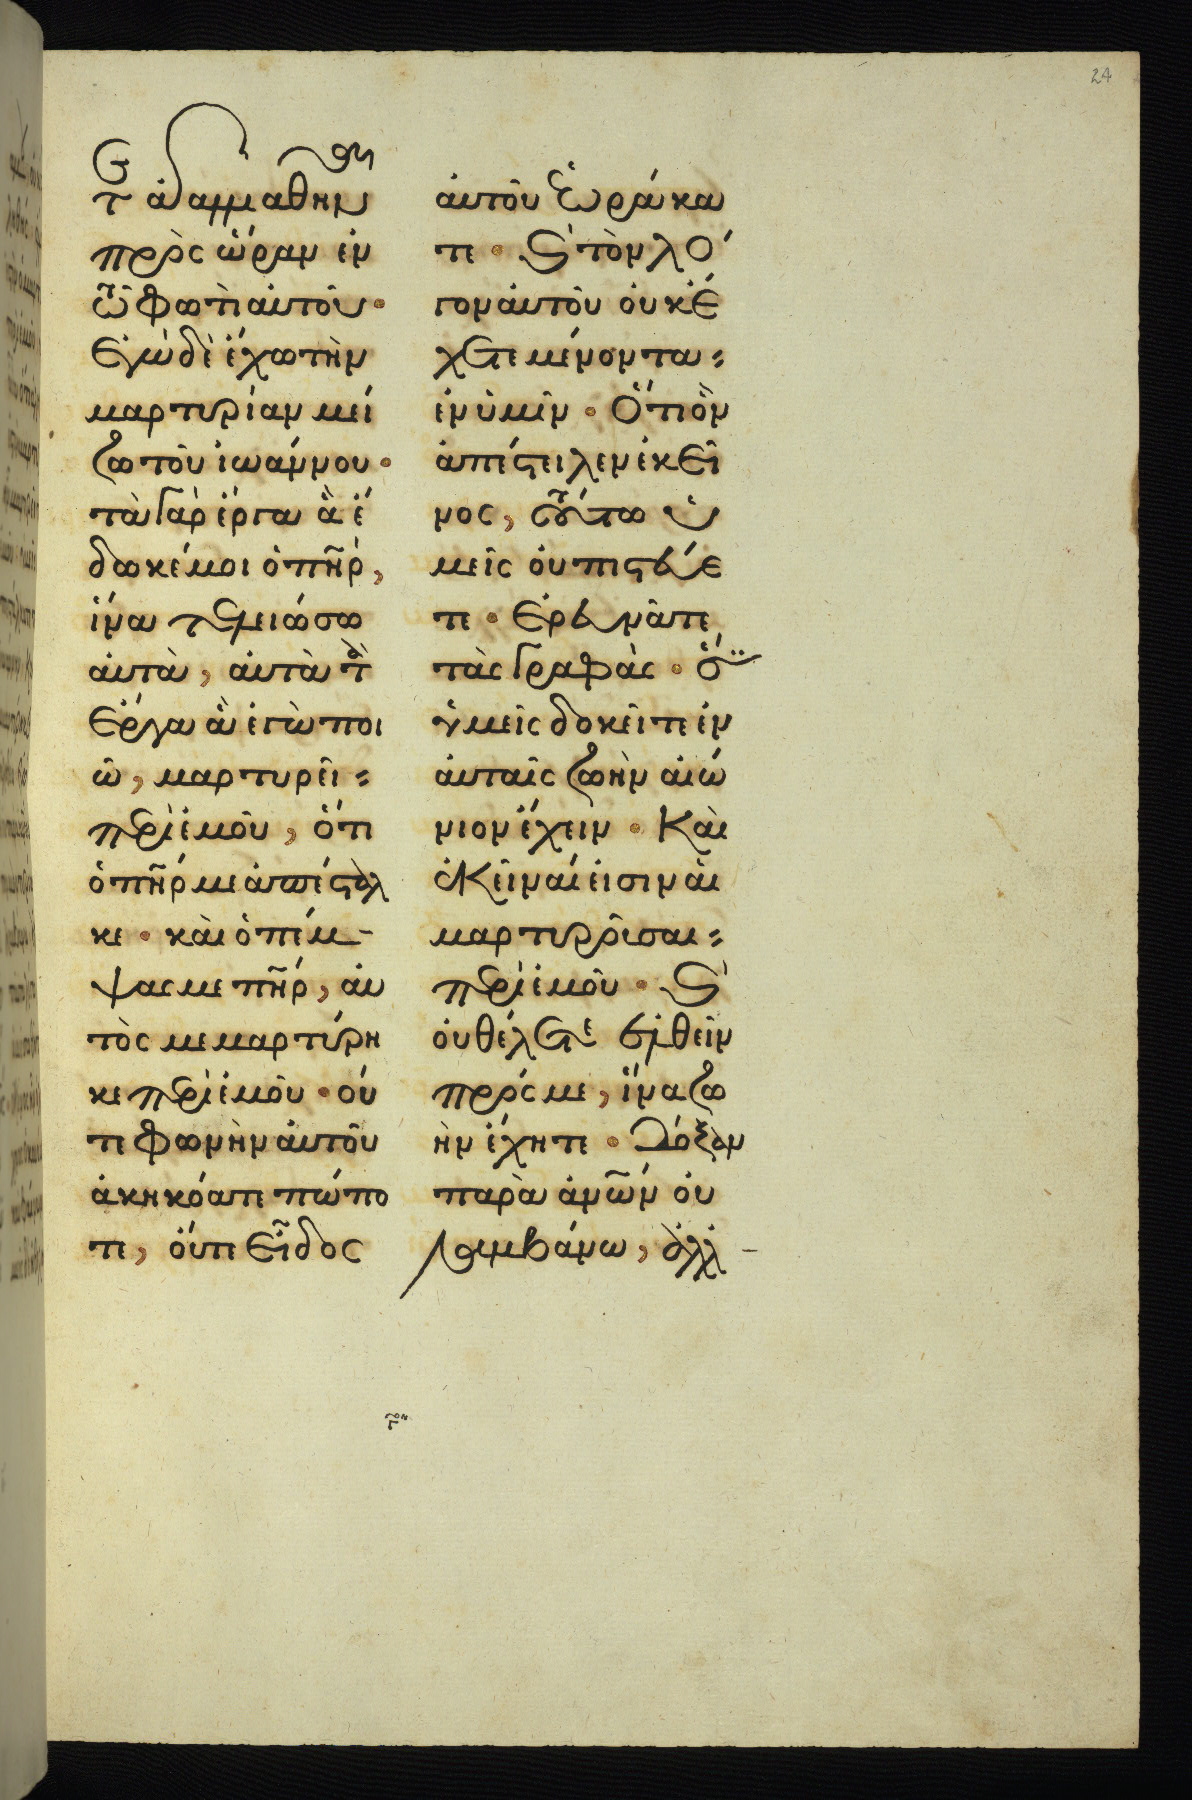 24
τε ἀγαλλιαθῆναι
πρὸς ὥραν ἐν
τῶ φωτὶ αὐτοῦ·
Ἐγὼ δὲ ἔχω τὴν
μαρτυρίαν μεί
ζω τοῦ ἰωάννου·
τὰ γὰρ ἔργα ἃ ἔ
δωκέ μοι ὁ πη̃ρ,
ἵνα τελειώσω
αὐτὰ, αὐτὰ τὰ
ἔργα ἃ ἐγὼ ποι
ῶ, μαρτυρεῖ
περὶ ἐμοῦ, ὅτι
ὁ πη̃ρ με ἀπέσταλ
κε· καὶ ὁ πέμ
ψας με πη̃ρ, αὐ
τὸς μεμαρτύρη
κε περὶ ἐμοῦ· οὔ
τε φωνὴν αὐτοῦ
ἀκηκόατε πώπο
τε, οὔτε εἶδος
αὐτοῦ ἑωράκα
τε· καὶ τὸν λό
γον αὐτοῦ οὐκ ἔ
χετε μένοντα
ἐν ὑμῖν· Ὅτι ὃν
ἀπέστειλεν ἐκεῖ
νος, τούτω ὑ
μεῖς οὐ πιστεύε
τε· Ἐρευνᾶτε
τὰς γραφὰς· ὅτι
ὑμεῖς δοκεῖτε ἐν
αὐταῖς ζωὴν αἰώ
νιον ἔχειν· Καὶ
ἐκεῖναί εἰσιν αἱ
μαρτυροῦσαι
περὶ ἐμοῦ· καὶ
οὐ θέλετε ἐλθεῖν
πρός με, ἵνα ζω
ὴν ἔχητε· Δόξαν
παρὰ ἀνῶν οὐ
λαμβάνω, ἀλλ